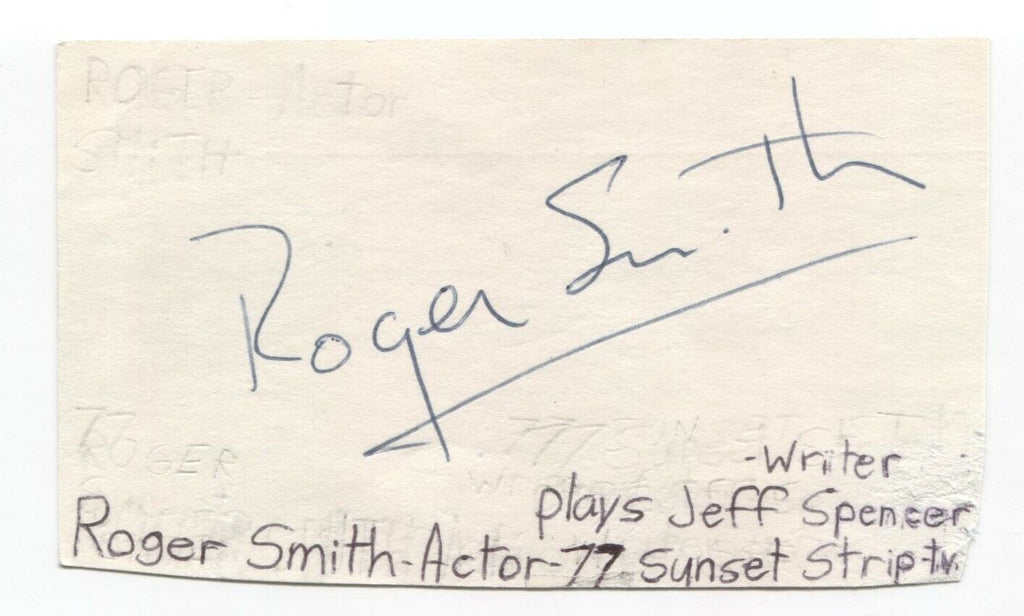 ROGER - Actor
SMITH
Roger Smith
77
ROGER
-Writer
plays Jeff Spencer
Roger Smith-Actor-77 Sunset Strip-tv.